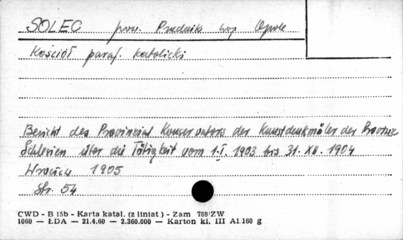 SOLEC pow. Prudnik woj. Opole
Kościół paraf. katolicki
Bericht des Provinzial Konservators der Kunstdenkmäler der Provinz
Schlesien über die Tätigkeit vom 1.I. 1903 bis 31. XII. 1904
Wrocław 1905
Str. 54
CWD - B 15b - Karta katal. (z liniat) - Zam 788/ZW
1060 — ŁDA — 21.4.60 — 2.360.000 — Karton kl. III A1 160 g